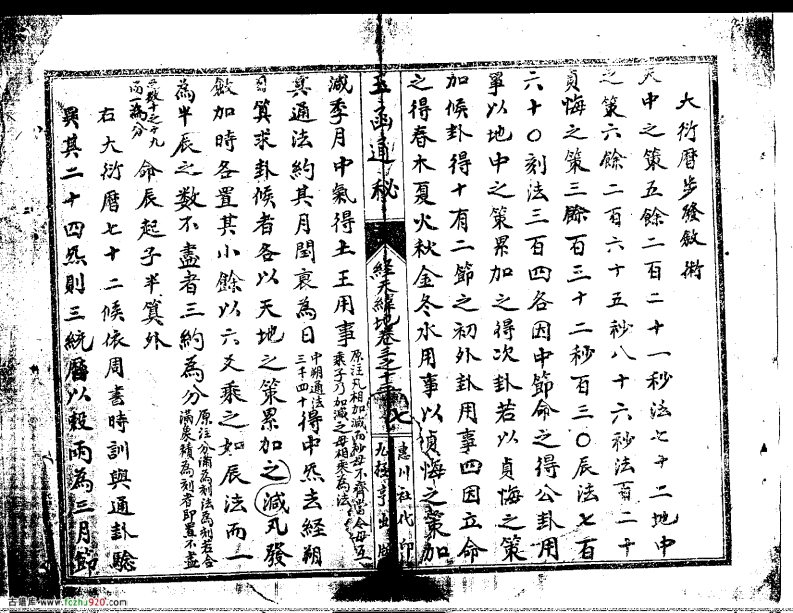 大衍曆步發斂術
天中之策五餘二百二十一秒法七十二地中
之策六餘二百六十五秒八十六秒法百二十
貞悔之策三餘百三十二秒百三〇辰法七百
六十〇刻法三百四各因中節命之得公卦用
事以地中之策累加之得次卦若以貞悔之策
加候卦得十有二節之初外卦用事四因立命
之得春木夏火秋金冬水用事以貞悔之策加
玉函通秘
經天緯地卷之三
七
惠川社代印
九極亭出版
減季月中氣得土王用事
原注凡相加減而秒母不齊當令母互
乘子乃加減之母相乘為法
其通法約其月閏衰為日
中朔通法
三千四十
得中炁去經朔
算求卦候者各以天地之策累加之減凡發
斂加時各置其小餘以六爻乘之如辰法而一
為半辰之數不盡者三約為分
原注分滿為刻法為刻若令
滿象積為刻者即置不盡
之數十之十九
而一為分
命辰起子半算外
右大衍曆七十二候依周書時訓與通卦驗
異其二十四炁則三統曆以穀雨為三月節
古籍库 www.fczhj920.com